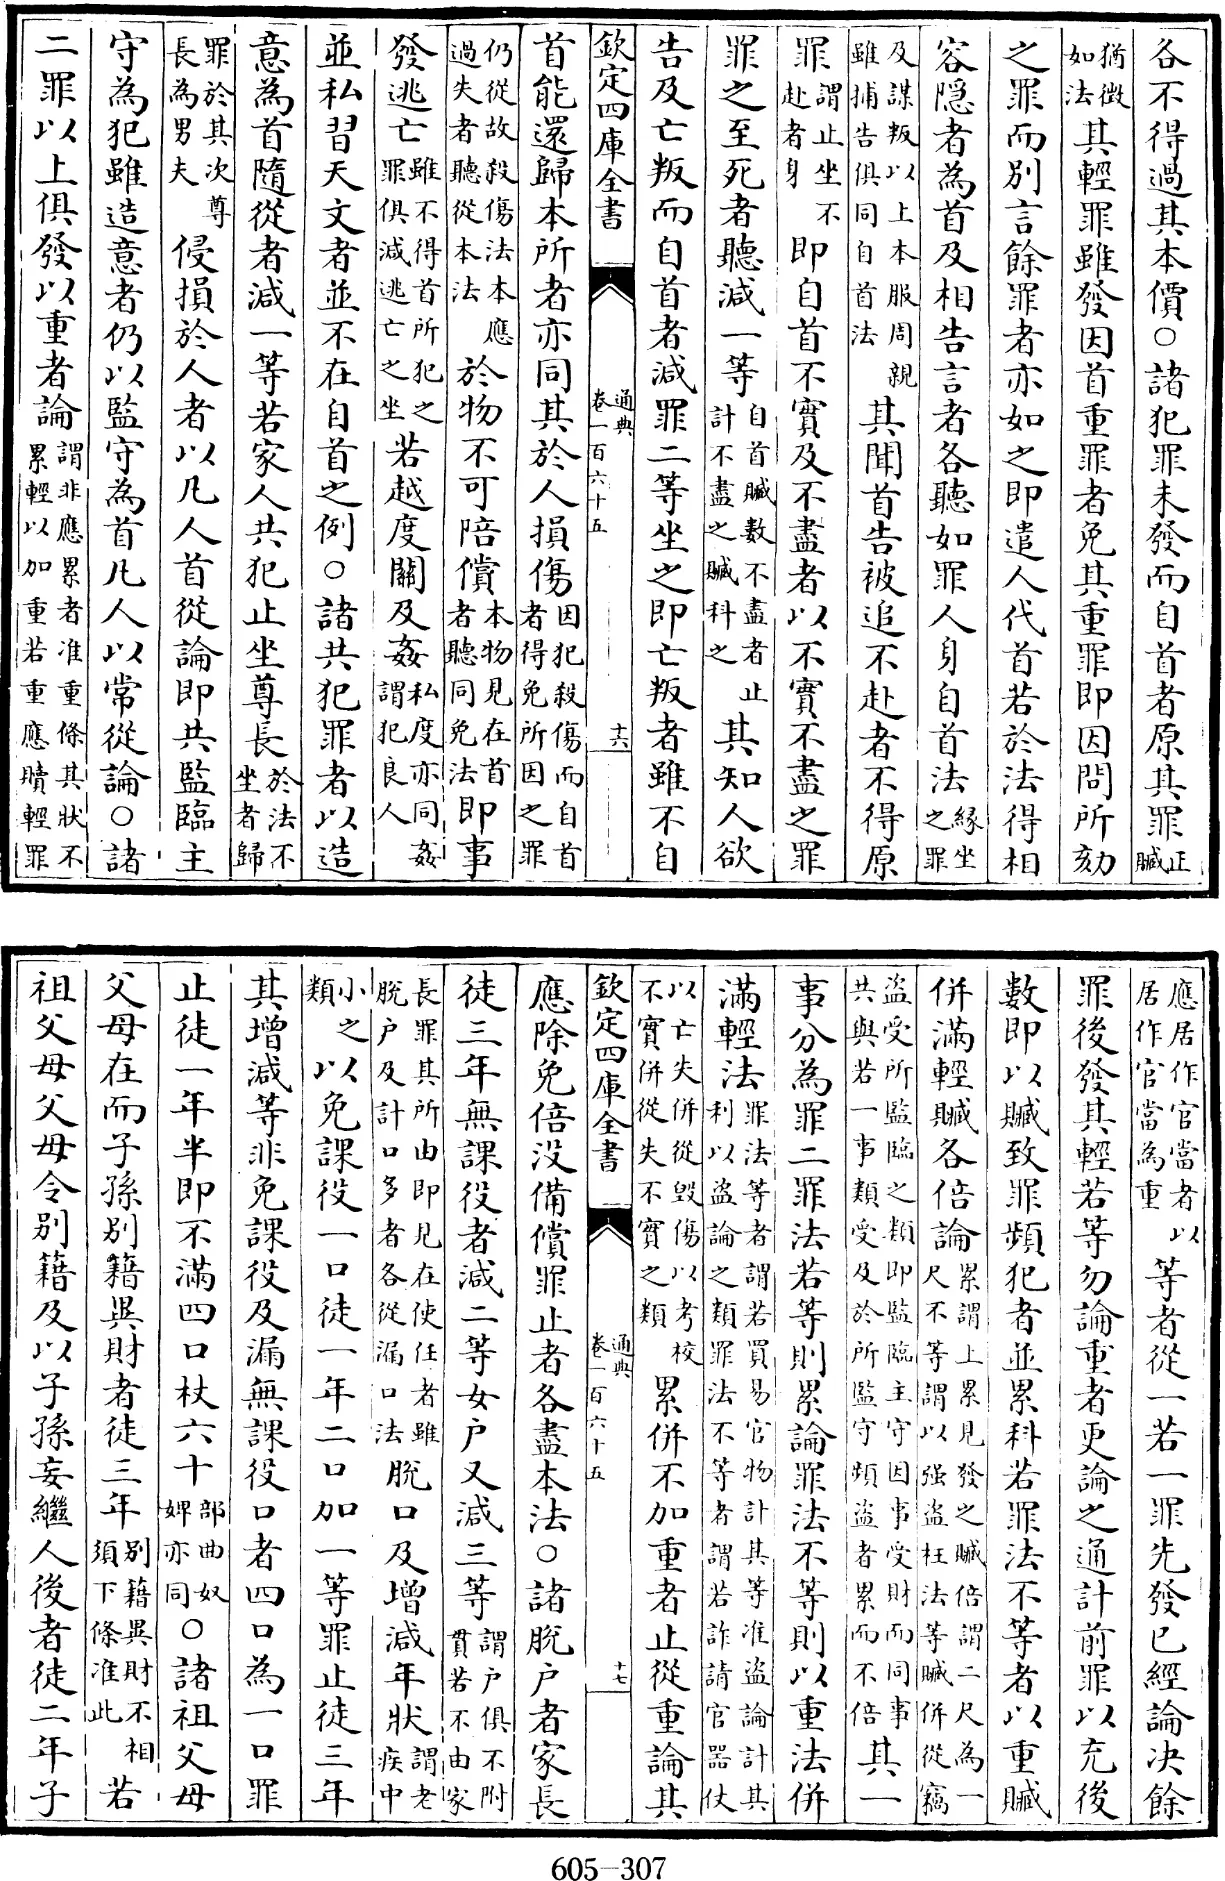 各不得過其本價○諸犯罪未發而自首者原其罪正贓
猶徴如法其輕罪雖發因首重罪者免其重罪即因問所劾
之罪而別言餘罪者亦如之即遣人代首若於法得相
容隠者為首及相告言者各聽如罪人身自首法緣坐之罪
及謀叛以上本服周親雖捕告俱同自首法其聞首告被追不赴者不得原
罪謂止坐不赴者身即自首不實及不盡者以不實不盡之罪
罪之至死者聽減一等自首贓數不盡者止計不盡之贓科之其知人欲
告及亡叛而自首者減罪二等坐之即亡叛者雖不自
欽定四庫全書 通典卷一百六十五 十六
首能還歸本所者亦同其於人損傷因犯殺傷而自首者得免所因之罪
仍從故殺傷法本應過失者聽從本法於物不可陪償本物見在首者聽同免法即事
發逃亡雖不得首所犯之罪俱減逃亡之坐若越度關及姦私度亦同姦謂犯良人
並私習天文者並不在自首之例○諸共犯罪者以造
意為首隨從者減一等若家人共犯止坐尊長於法不坐者歸
罪於其次尊長為男夫侵損於人者以凡人首從論即共監臨主
守為犯雖造意者仍以監守為首凡人以常從論○諸
二罪以上俱發以重者論謂非應累者准重條其狀不累輕以加重若重應贖輕罪
應居作官當者以居作官當為重等者從一若一罪先發已經論决餘
罪後發其輕若等勿論重者更論之通計前罪以充後
數即以贓致罪頻犯者並累科若罪法不等者以重贓
併滿輕贓各倍論累謂上累見發之贓倍謂二尺為一尺不等謂以强盜枉法等贓併從竊
盜受所監臨之類即監臨主守因事受財而同事共與若一事類受及於所監守頻盜者累而不倍其一
事分為罪二罪法若等則累論罪法不等則以重法併
滿輕法罪法等者謂若買易官物計其等准盜論計其利以盜論之類罪法不等者謂若詐請官器仗
以亡失併從毀傷以考校不實併從失不實之類累併不加重者止從重論其
欽定四庫全書 通典卷一百六十五 十七
應除免倍没備償罪止者各盡本法○諸脫户者家長
徒三年無課役者減二等女户又減三等謂户俱不附貫若不由家
長罪其所由即見在使任者雖脫户及計口多者各從漏口法脫口及增減年狀謂老疾中
小之類以免課役一口徒一年二口加一等罪止徒三年
其增減等非免課役及漏無課役口者四口為一口罪
止徒一年半即不滿四口杖六十部曲奴婢亦同○諸祖父母
父母在而子孫別籍異財者徒三年別籍異財不相須下條准此若
祖父母父母令別籍及以子孫妄繼人後者徒二年子
605-307